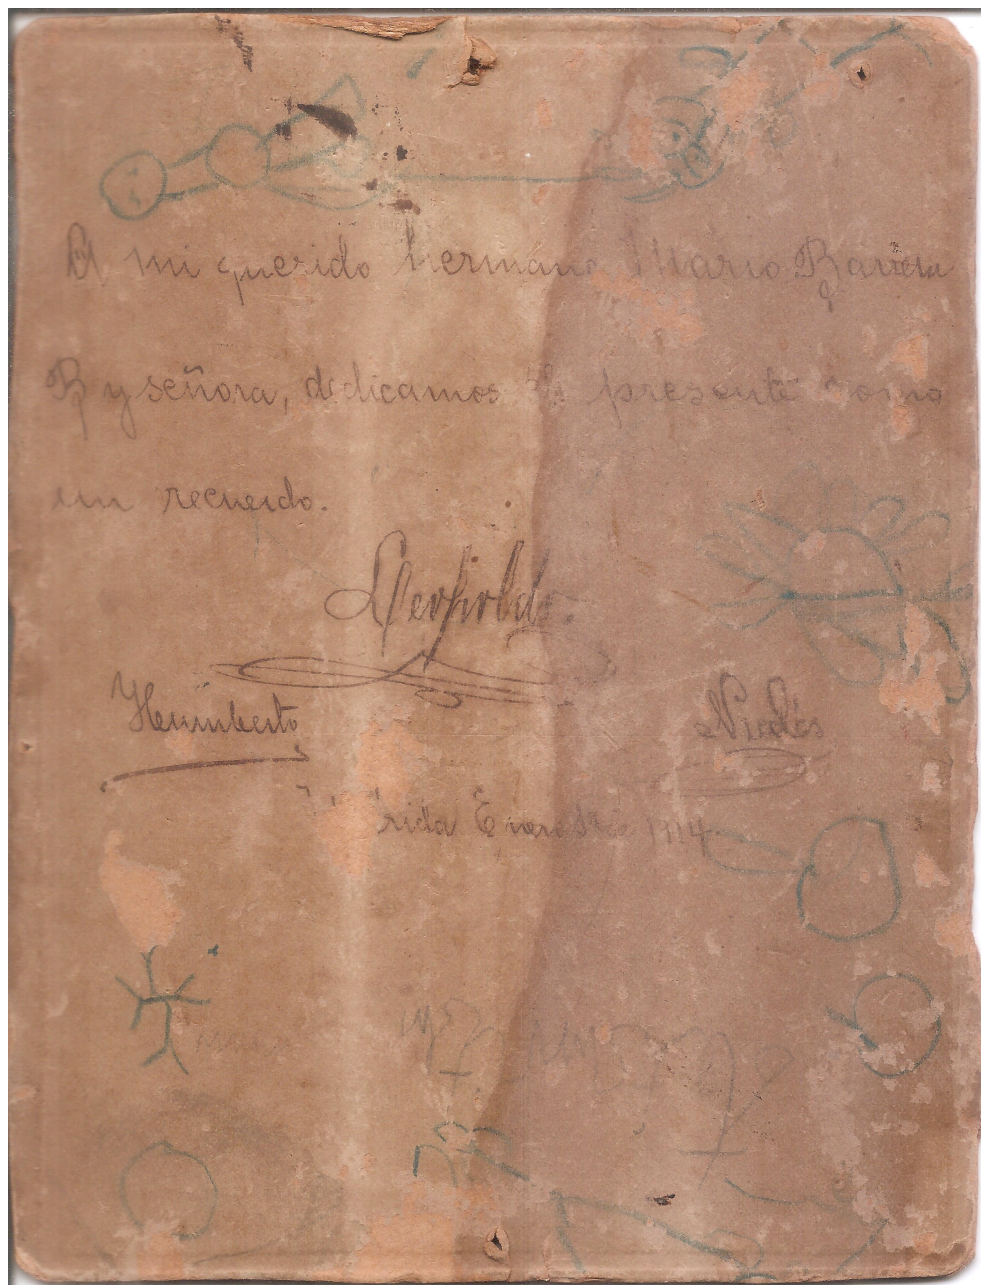 A mi querido hermano Mario Barrera
B y señora, dedicamos la presente como
un recuerdo.
Humberto
Nicolás
rida Enero 1914